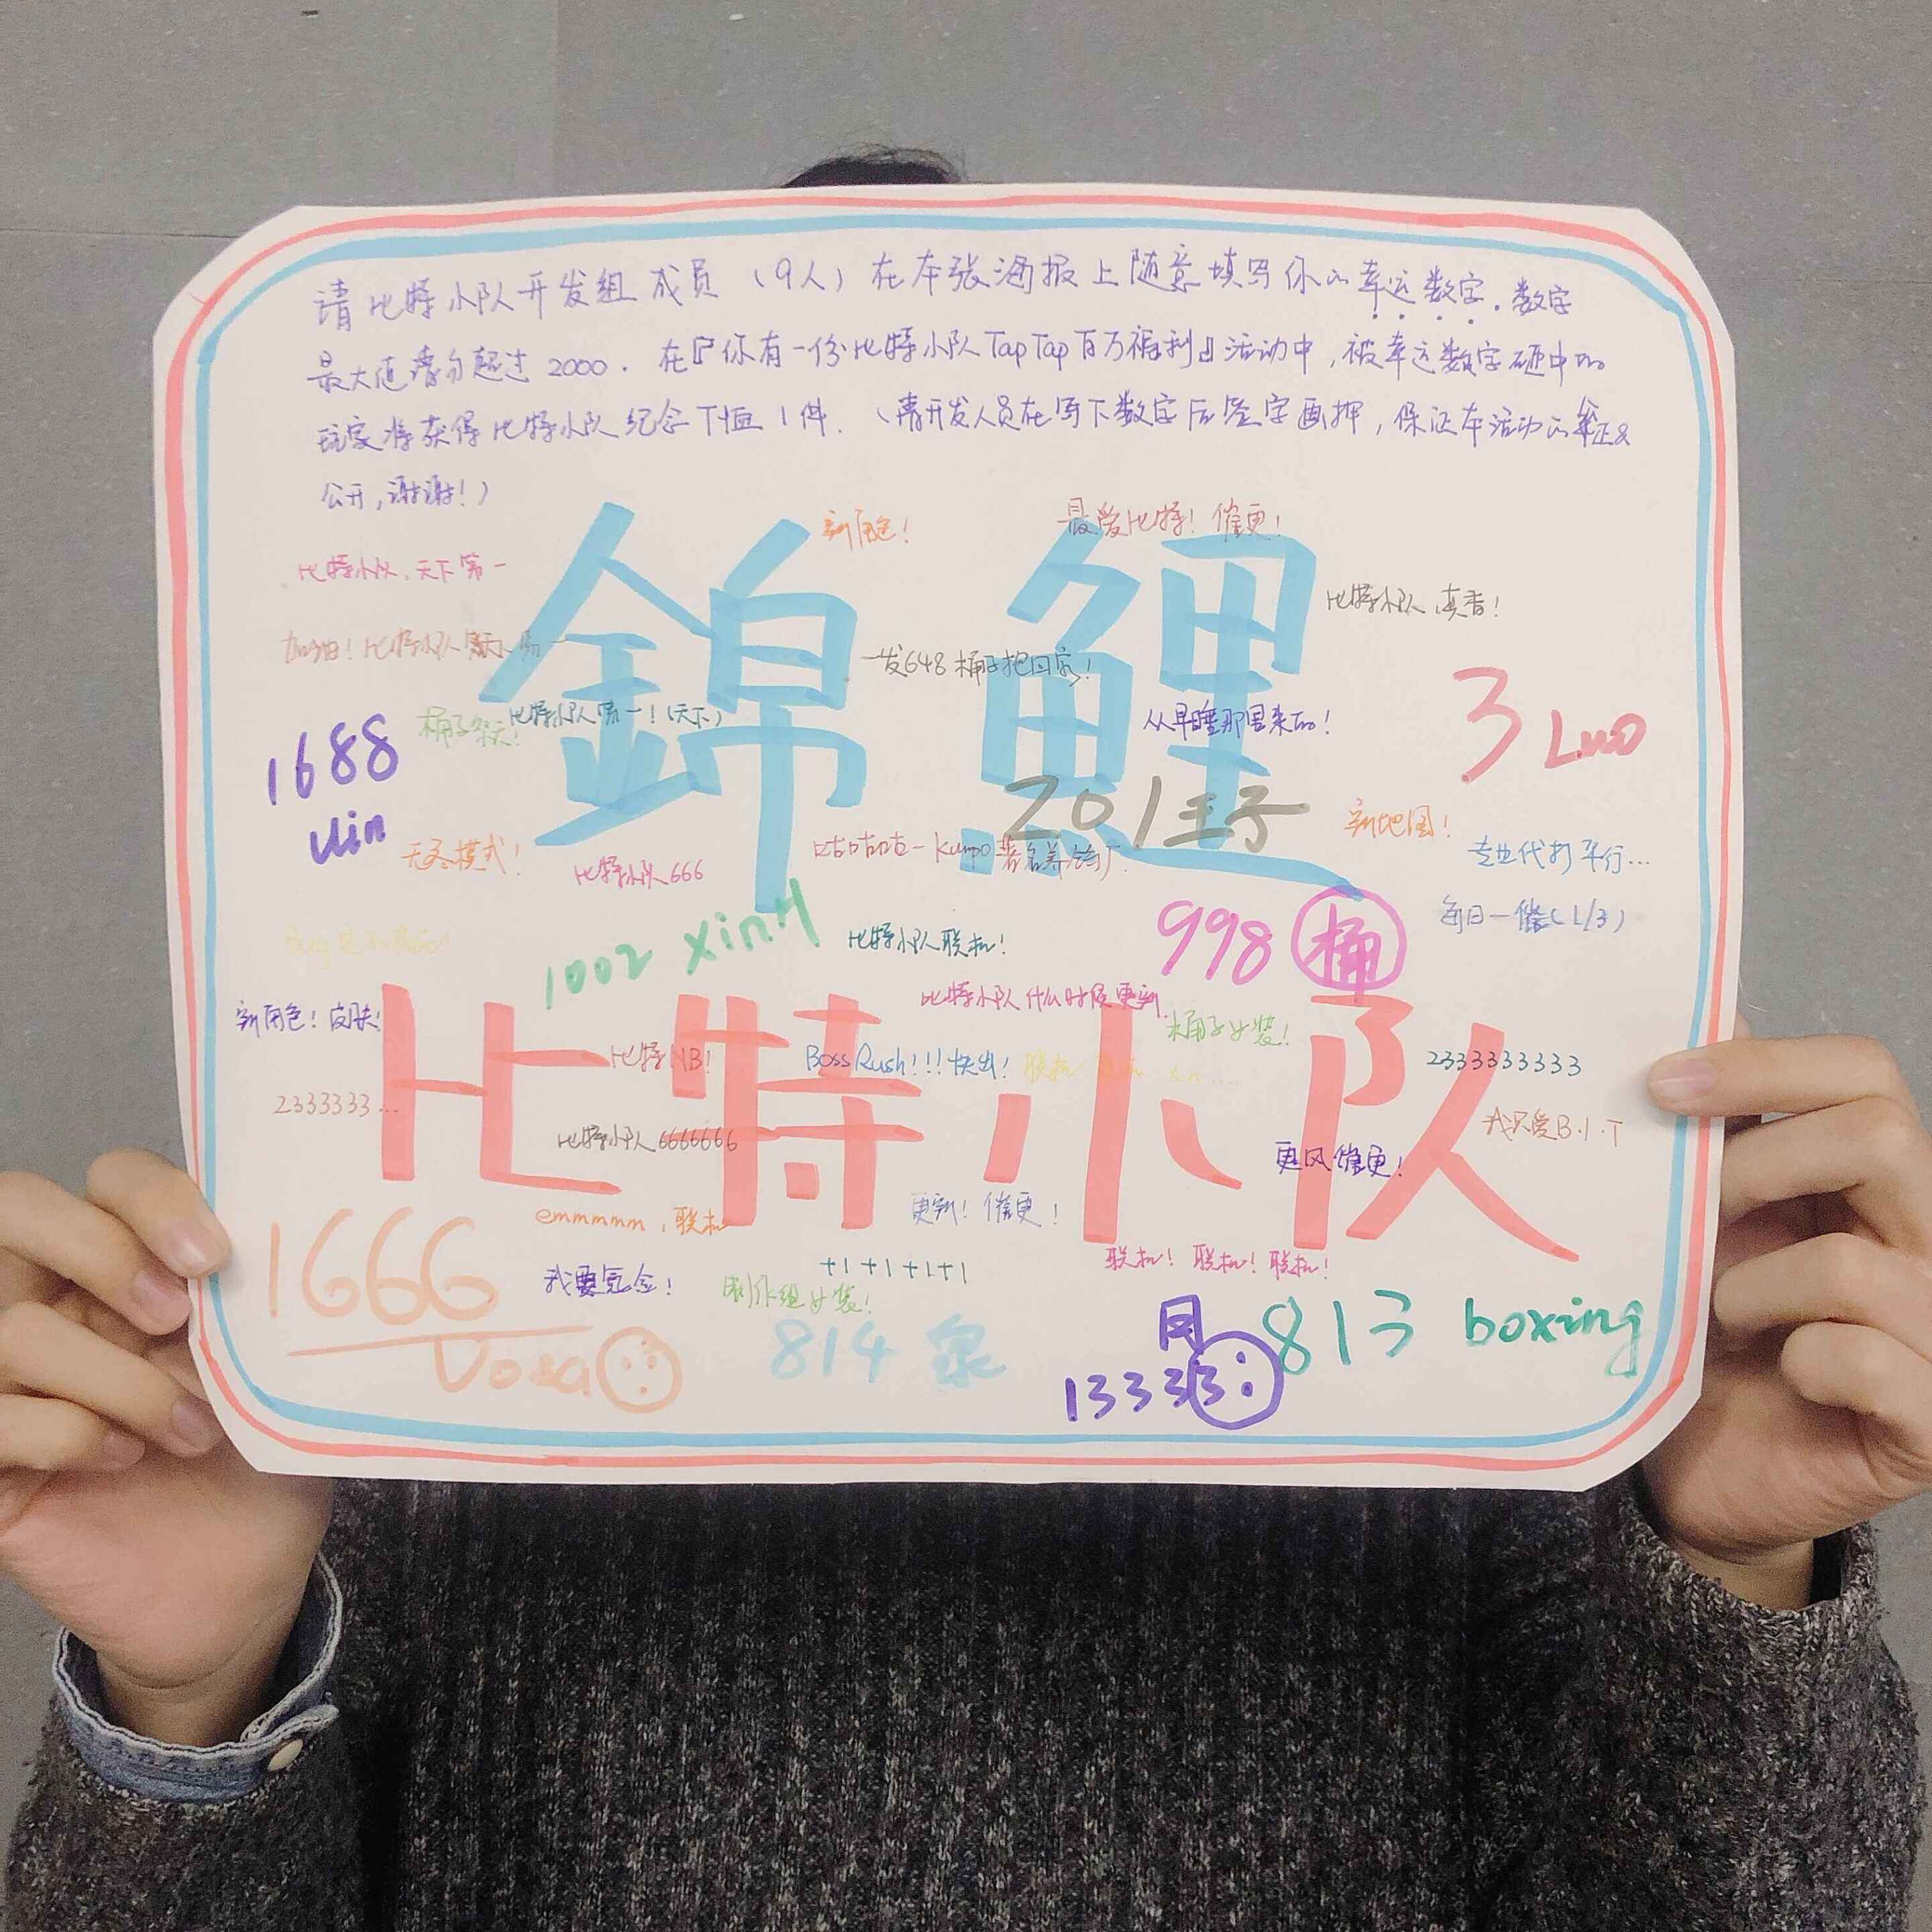 请比特小队开发组成员（9人）在本张海报上随意填写你的幸运数字.数字
最大值请勿超过2000.在『你有一份比特小队TapTap百万福利』活动中,被幸运数字砸中的
玩家将获得比特小队纪念T恤1件.（请开发人员在写下数字后签字画押,保证本活动的公正&
公开,谢谢!）
新角色!
最爱比特!催更!
比特小队,天下第一
比特小队,真香!
錦鯉
加油!比特小队
一发648桶子抱回家!
3 Luo
1688
Uin
桶子祭天!
比特小队第一!(天下)
从早睡那里来的!
201王子
新地图!
无尽模式!
比特小队666
咕咕咕咕-Kunpo著名养鸽厂.
专业代打平行...
1002 xinH
比特小队联机!
998 桶
每日一催(1/3)
新角色!皮肤!
比特小队什么时候更新
桶子女装!
比特小队
比特NB!
BossRush!!!快出!
联机
23333333333
2333333...
比特小队6666666
更风催更!
我只爱B.I.T
emmmmm,联机
更新!催更!
联机!联机!联机!
1666
Dosa
我要氪金!
制作组女装!
+1+1+1+1
814 泉
风
13333
813 boxing